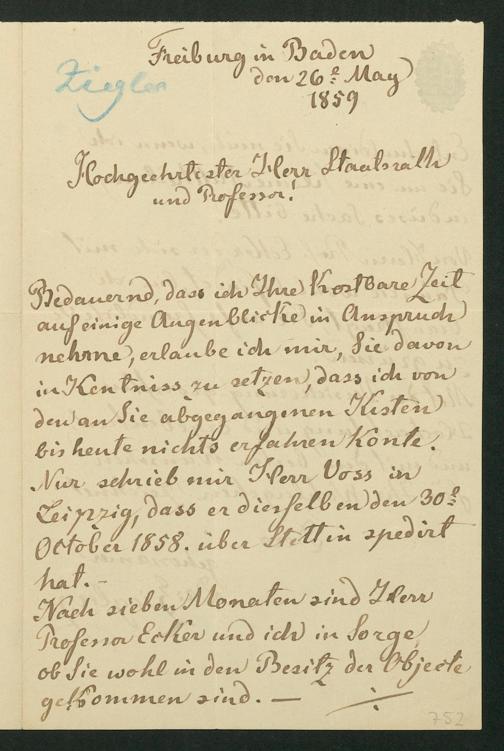 Freiburg in Baden
Ziegler
den 26t May
1859
Hochgeehrtester Herr Staatsrath
und Professor!
Bedauernd, dass ich Ihre kostbare Zeit
auf einige Augenblicke in Anspruch
nehme, erlaube ich mir, Sie davon
in Kentniss zu setzen, dass ich von
den an Sie abgegangenen Kisten
bis heute nichts erfahren konte.
Nur schrieb mir Herr Voss in
Leipzig, dass er dieselben den 30t
October 1858. über Stettin spedirt
hat. -
Nach sieben Monaten sind Herr
Professor Ecker und ich in Sorge,
ob Sie wohl in den Besitz der Objecte
gekommen sind. —
752